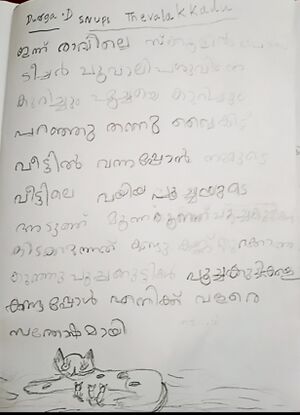 Durga ·D SNUPS Thevalakkadu
ഇന്ന് രാവിലെ സ്കൂളിൽ പോയ
ടീച്ചർ പൂവാലിപശുവിനെ
കുറിച്ചും പൂച്ചയെ കുറിച്ചും
പറഞ്ഞു തന്നു വൈകിട്ട്
വീട്ടിൽ വന്നപ്പോൾ
വീട്ടിലെ വയിയ പൂച്ചയുടെ
മൂന്ന്
കിടക്കുന്നത് കണ്ടു
കുഞ്ഞു പൂച്ചകുട്ടികൾ പൂച്ചക്കുട്ടികളെ
കണ്ടപ്പോൾ എനിക്ക് വളരെ
സന്തോഷമായി